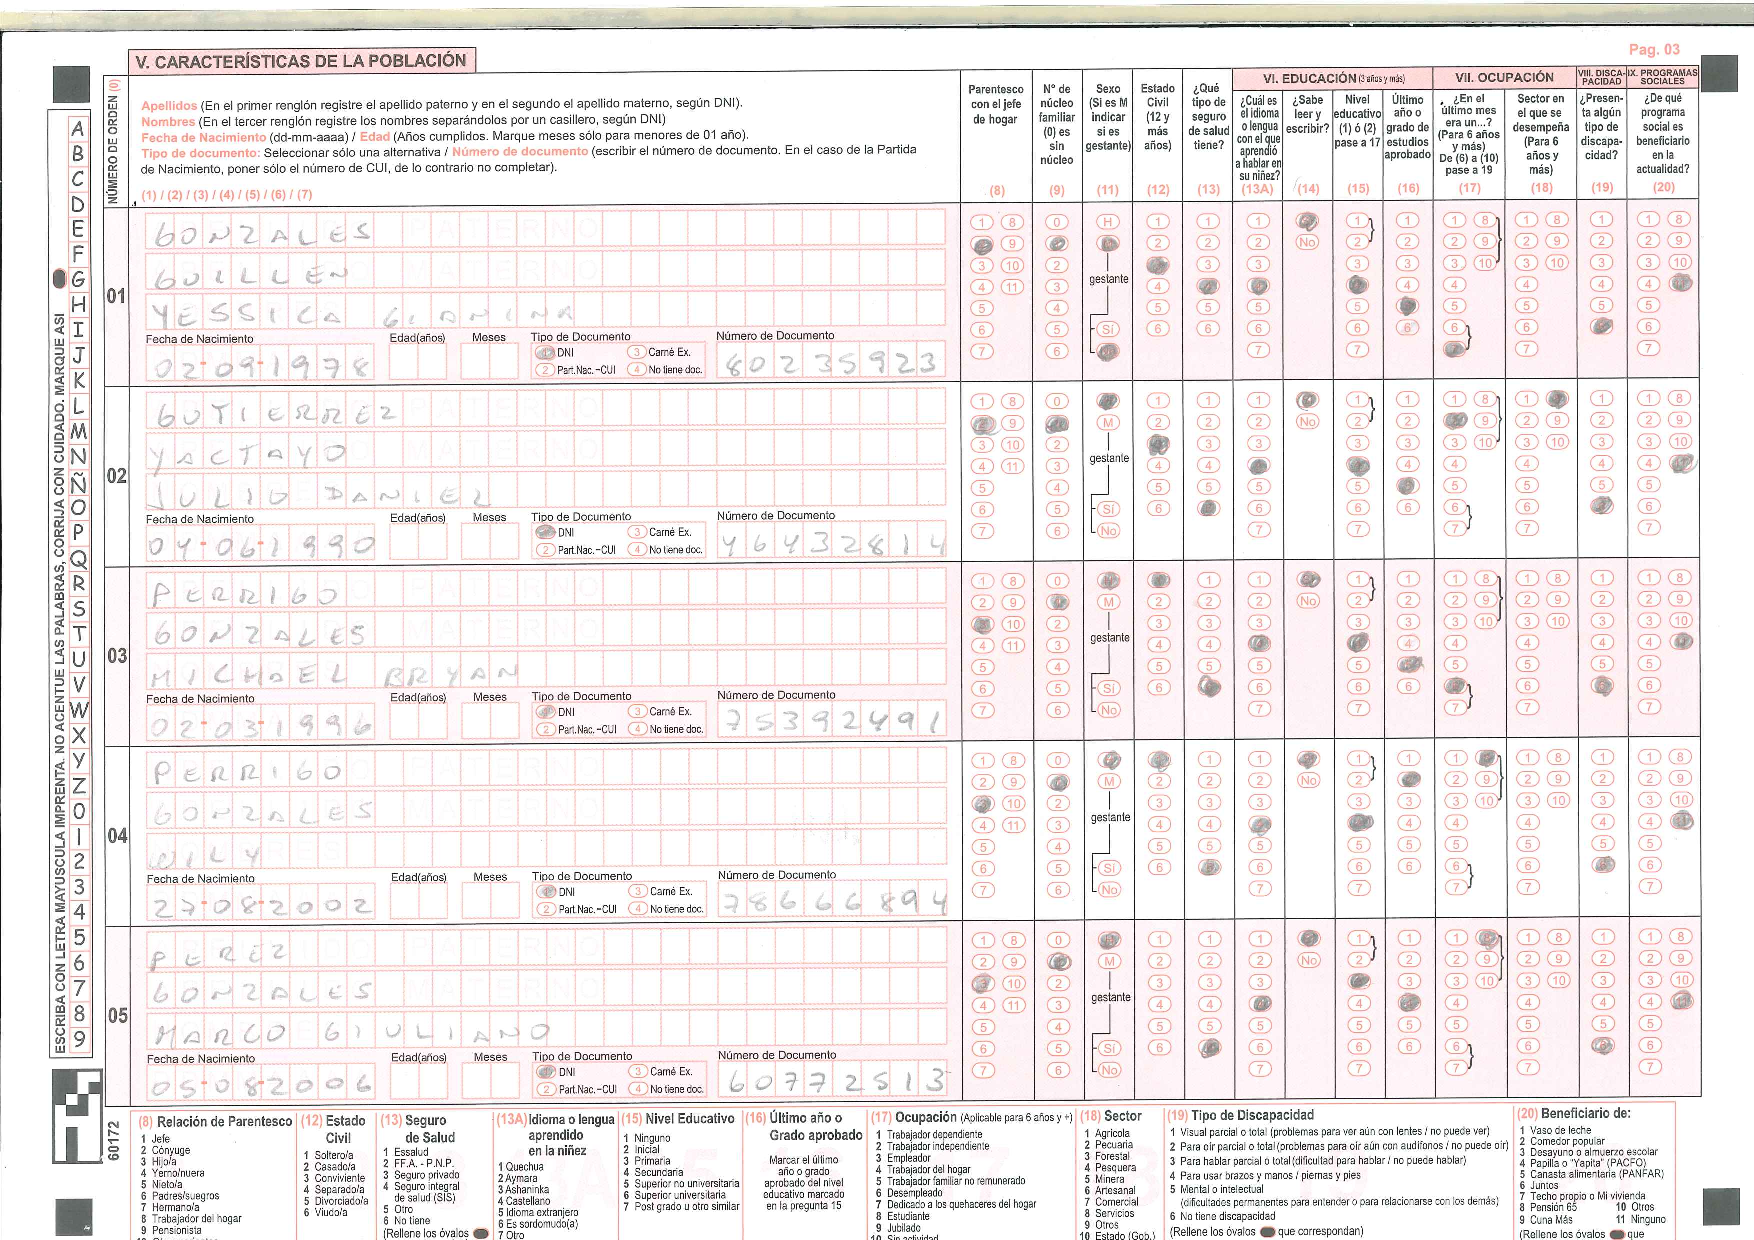 Pag. 03
V. CARACTERÍSTICAS DE LA POBLACIÓN
NÚMERO DE ORDEN (0)
Apellidos (En el primer renglón registre el apellido paterno y en el segundo el apellido materno, según DNI).
Nombres (En el tercer renglón registre los nombres separándolos por un casillero, según DNI)
Fecha de Nacimiento (dd-mm-aaaa) / Edad (Años cumplidos. Marque meses sólo para menores de 01 año).
Tipo de documento: Seleccionar sólo una alternativa / Número de documento (escribir el número de documento. En el caso de la Partida
de Nacimiento, poner sólo el número de CUI, de lo contrario no completar).
(1) / (2) / (3) / (4) / (5) / (6) / (7)
Parentesco con el jefe de hogar (8)
N° de núcleo familiar (0) es sin núcleo (9)
Sexo (Si es M indicar si es gestante) (11)
Estado Civil (12 y más años) (12)
¿Qué tipo de seguro de salud tiene? (13)
VI. EDUCACIÓN (3 años y más)
¿Cuál es el idioma o lengua con el que aprendió a hablar en su niñez? (13A)
¿Sabe leer y escribir? (14)
Nivel educativo (1) ó (2) pase a 17 (15)
Último año o grado de estudios aprobado (16)
VII. OCUPACIÓN
¿En el último mes era un...? (Para 6 años y más) De (6) a (10) pase a 19 (17)
Sector en el que se desempeña (Para 6 años y más) (18)
VIII. DISCAPACIDAD
¿Presenta algún tipo de discapacidad? (19)
IX. PROGRAMAS SOCIALES
¿De qué programa social es beneficiario en la actualidad? (20)
ESCRIBA CON LETRA MAYUSCULA IMPRENTA. NO ACENTUE LAS PALABRAS, CORRIJA CON CUIDADO. MARQUE ASI
A B C D E F G H I J K L M N Ñ O P Q R S T U V W X Y Z 0 1 2 3 4 5 6 7 8 9
01
GONZALES
GUILLEN
YESSICA GIANINA
Fecha de Nacimiento Edad(años) Meses Tipo de Documento Número de Documento
02-09-1978 1 DNI 3 Carné Ex. 2 Part.Nac.-CUI 4 No tiene doc. 80235923
gestante Sí No
02
GUTIERREZ
YACTAYO
JULIO DANIEL
Fecha de Nacimiento Edad(años) Meses Tipo de Documento Número de Documento
04-06-1990 DNI 3 Carné Ex. 2 Part.Nac.-CUI 4 No tiene doc. 46432814
gestante Sí No
03
PERRIGO
GONZALES
MICHAEL BRYAN
Fecha de Nacimiento Edad(años) Meses Tipo de Documento Número de Documento
02-03-1996 1 DNI 3 Carné Ex. 2 Part.Nac.-CUI 4 No tiene doc. 75392491
gestante Sí No
04
PERRIGO
GONZALES
WILY
Fecha de Nacimiento Edad(años) Meses Tipo de Documento Número de Documento
27-08-2002 1 DNI 3 Carné Ex. 2 Part.Nac.-CUI 4 No tiene doc. 78666894
gestante Sí No
05
PEREZ
GONZALES
MARCO GIULIANO
Fecha de Nacimiento Edad(años) Meses Tipo de Documento Número de Documento
05-08-2006 DNI 3 Carné Ex. 2 Part.Nac.-CUI 4 No tiene doc. 60772513
gestante Sí No
60172
(8) Relación de Parentesco
1 Jefe
2 Cónyuge
3 Hijo/a
4 Yerno/nuera
5 Nieto/a
6 Padres/suegros
7 Hermano/a
8 Trabajador del hogar
9 Pensionista
(12) Estado Civil
1 Soltero/a
2 Casado/a
3 Conviviente
4 Separado/a
5 Divorciado/a
6 Viudo/a
(13) Seguro de Salud
1 Essalud
2 FF.A. - P.N.P.
3 Seguro privado
4 Seguro integral de salud (SIS)
5 Otro
6 No tiene
(Rellene los óvalos
(13A) Idioma o lengua aprendido en la niñez
1 Quechua
2 Aymara
3 Ashaninka
4 Castellano
5 Idioma extranjero
6 Es sordomudo(a)
7 Otro
(15) Nivel Educativo
1 Ninguno
2 Inicial
3 Primaria
4 Secundaria
5 Superior no universitaria
6 Superior universitaria
7 Post grado u otro similar
(16) Último año o Grado aprobado
Marcar el último año o grado aprobado del nivel educativo marcado en la pregunta 15
(17) Ocupación (Aplicable para 6 años y +)
1 Trabajador dependiente
2 Trabajador independiente
3 Empleador
4 Trabajador del hogar
5 Trabajador familiar no remunerado
6 Desempleado
7 Dedicado a los quehaceres del hogar
8 Estudiante
9 Jubilado
10 Sin actividad
(18) Sector
1 Agricola
2 Pecuaria
3 Forestal
4 Pesquera
5 Minera
6 Artesanal
7 Comercial
8 Servicios
9 Otros
10 Estado (Gob.)
(19) Tipo de Discapacidad
1 Visual parcial o total (problemas para ver aún con lentes / no puede ver)
2 Para oir parcial o total (problemas para oir aún con audífonos / no puede oir)
3 Para hablar parcial o total (dificultad para hablar / no puede hablar)
4 Para usar brazos y manos / piernas y pies
5 Mental o intelectual
(dificultades permanentes para entender o para relacionarse con los demás)
6 No tiene discapacidad
(Rellene los óvalos que correspondan)
(20) Beneficiario de:
1 Vaso de leche
2 Comedor popular
3 Desayuno o almuerzo escolar
4 Papilla o "Yapita" (PACFO)
5 Canasta alimentaria (PANFAR)
6 Juntos
7 Techo propio o Mi vivienda
8 Pensión 65 10 Otros
9 Cuna Más 11 Ninguno
(Rellene los óvalos que